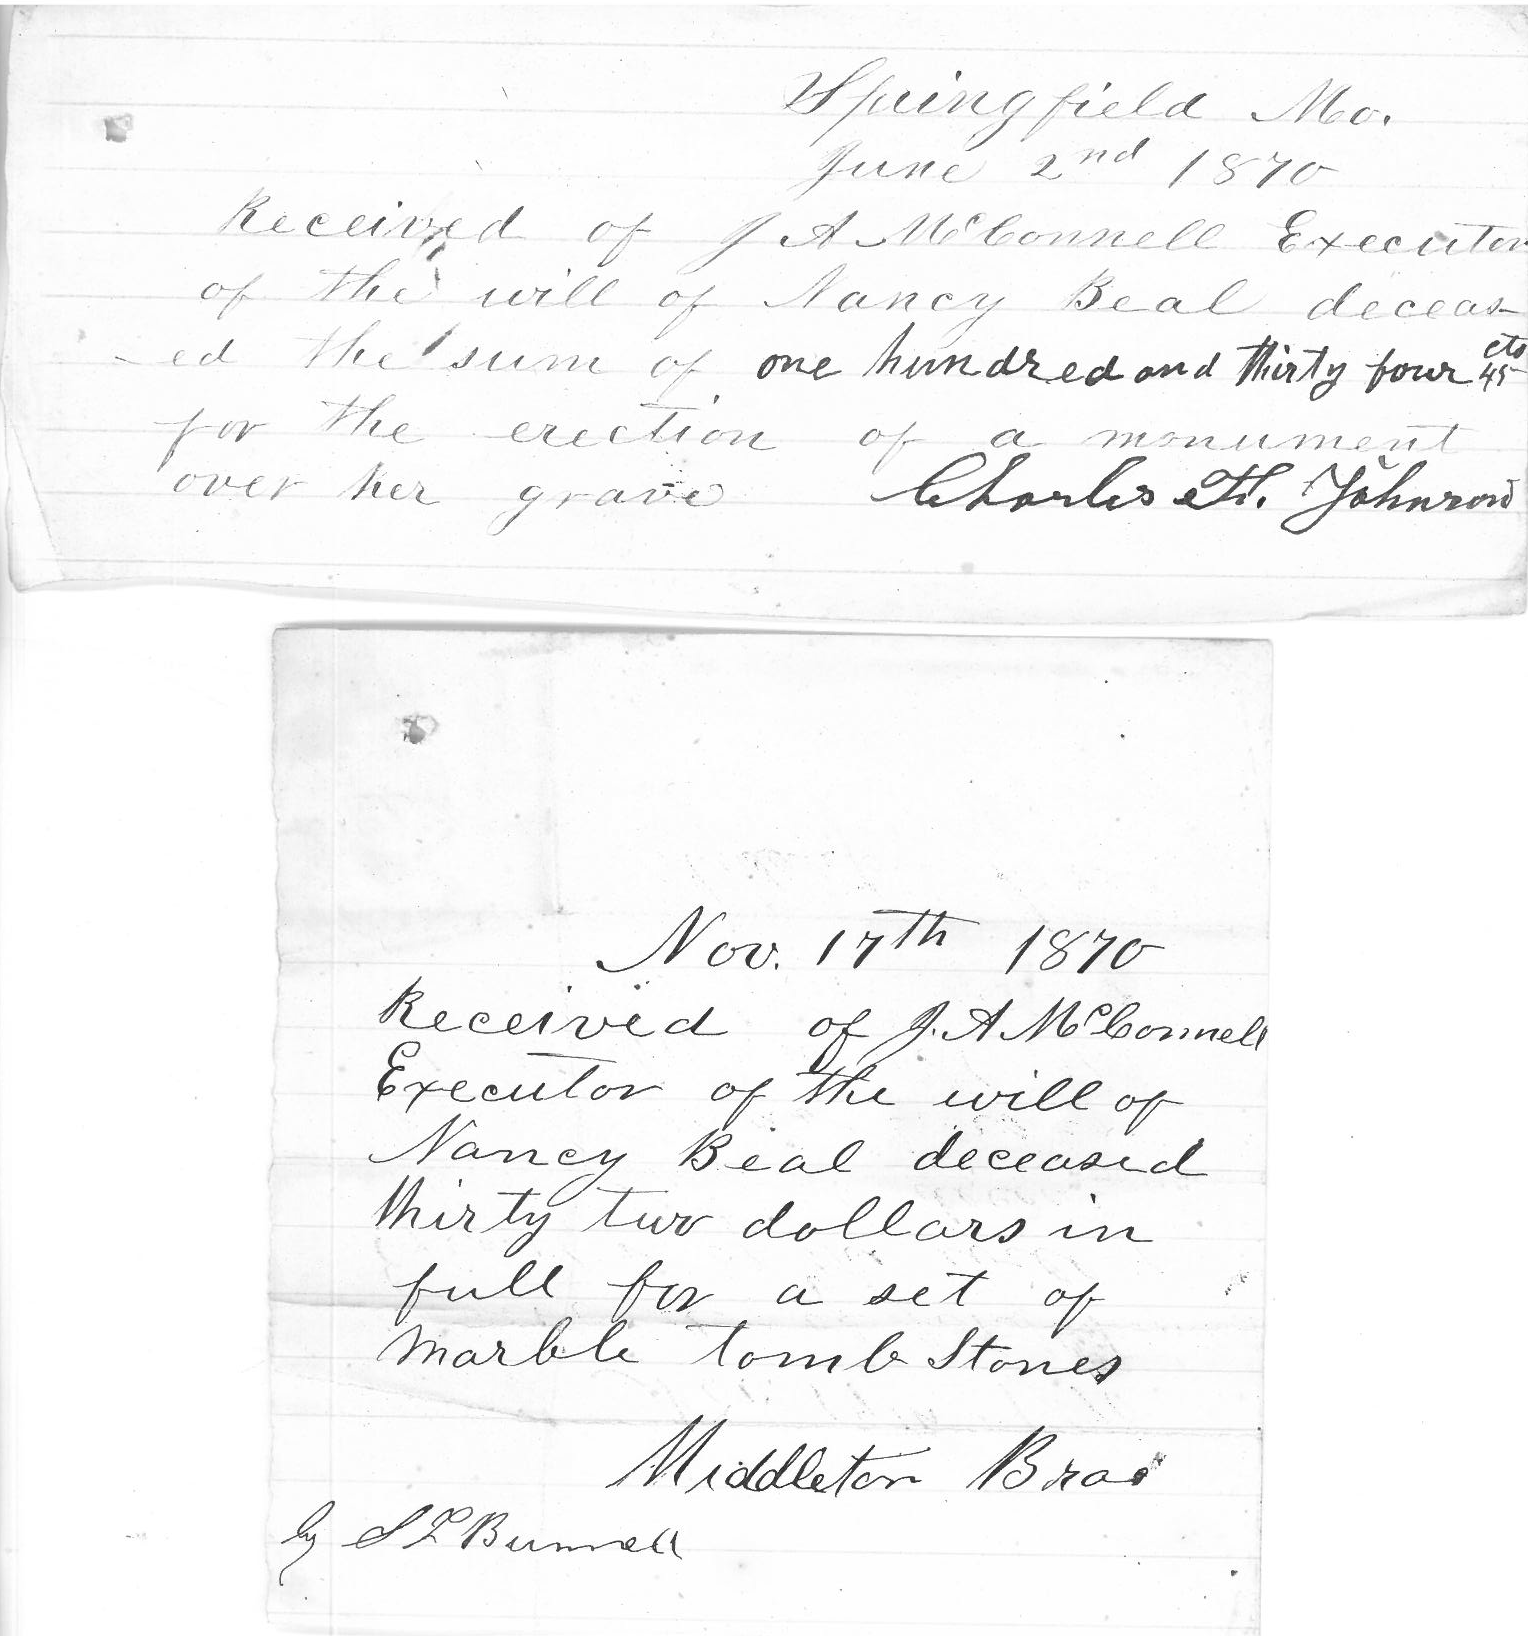 Springfield Mo.
June 2nd 1870
Received of J A McConnell Executor
of the will of Nancy Beal deceas-
-ed the sum of one hundred and thirty four cts 45
for the erection of a monument
over her grave Charles H. Johnson
Nov. 17th 1870
Received of J. A McConnell
Executor of the will of
Nancy Beal deceased
thirty two dollars in
full for a set of
marble tomb Stones
Middleton Bros
by S L Bunnell